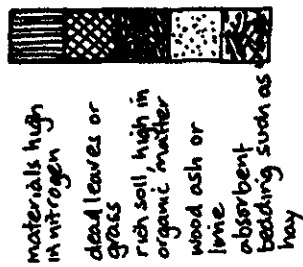 materials high
in nitrogen
dead leaves or
grass
rich soil, high in
organic matter
wood ash or
lime
absorbent
bedding such as
hay